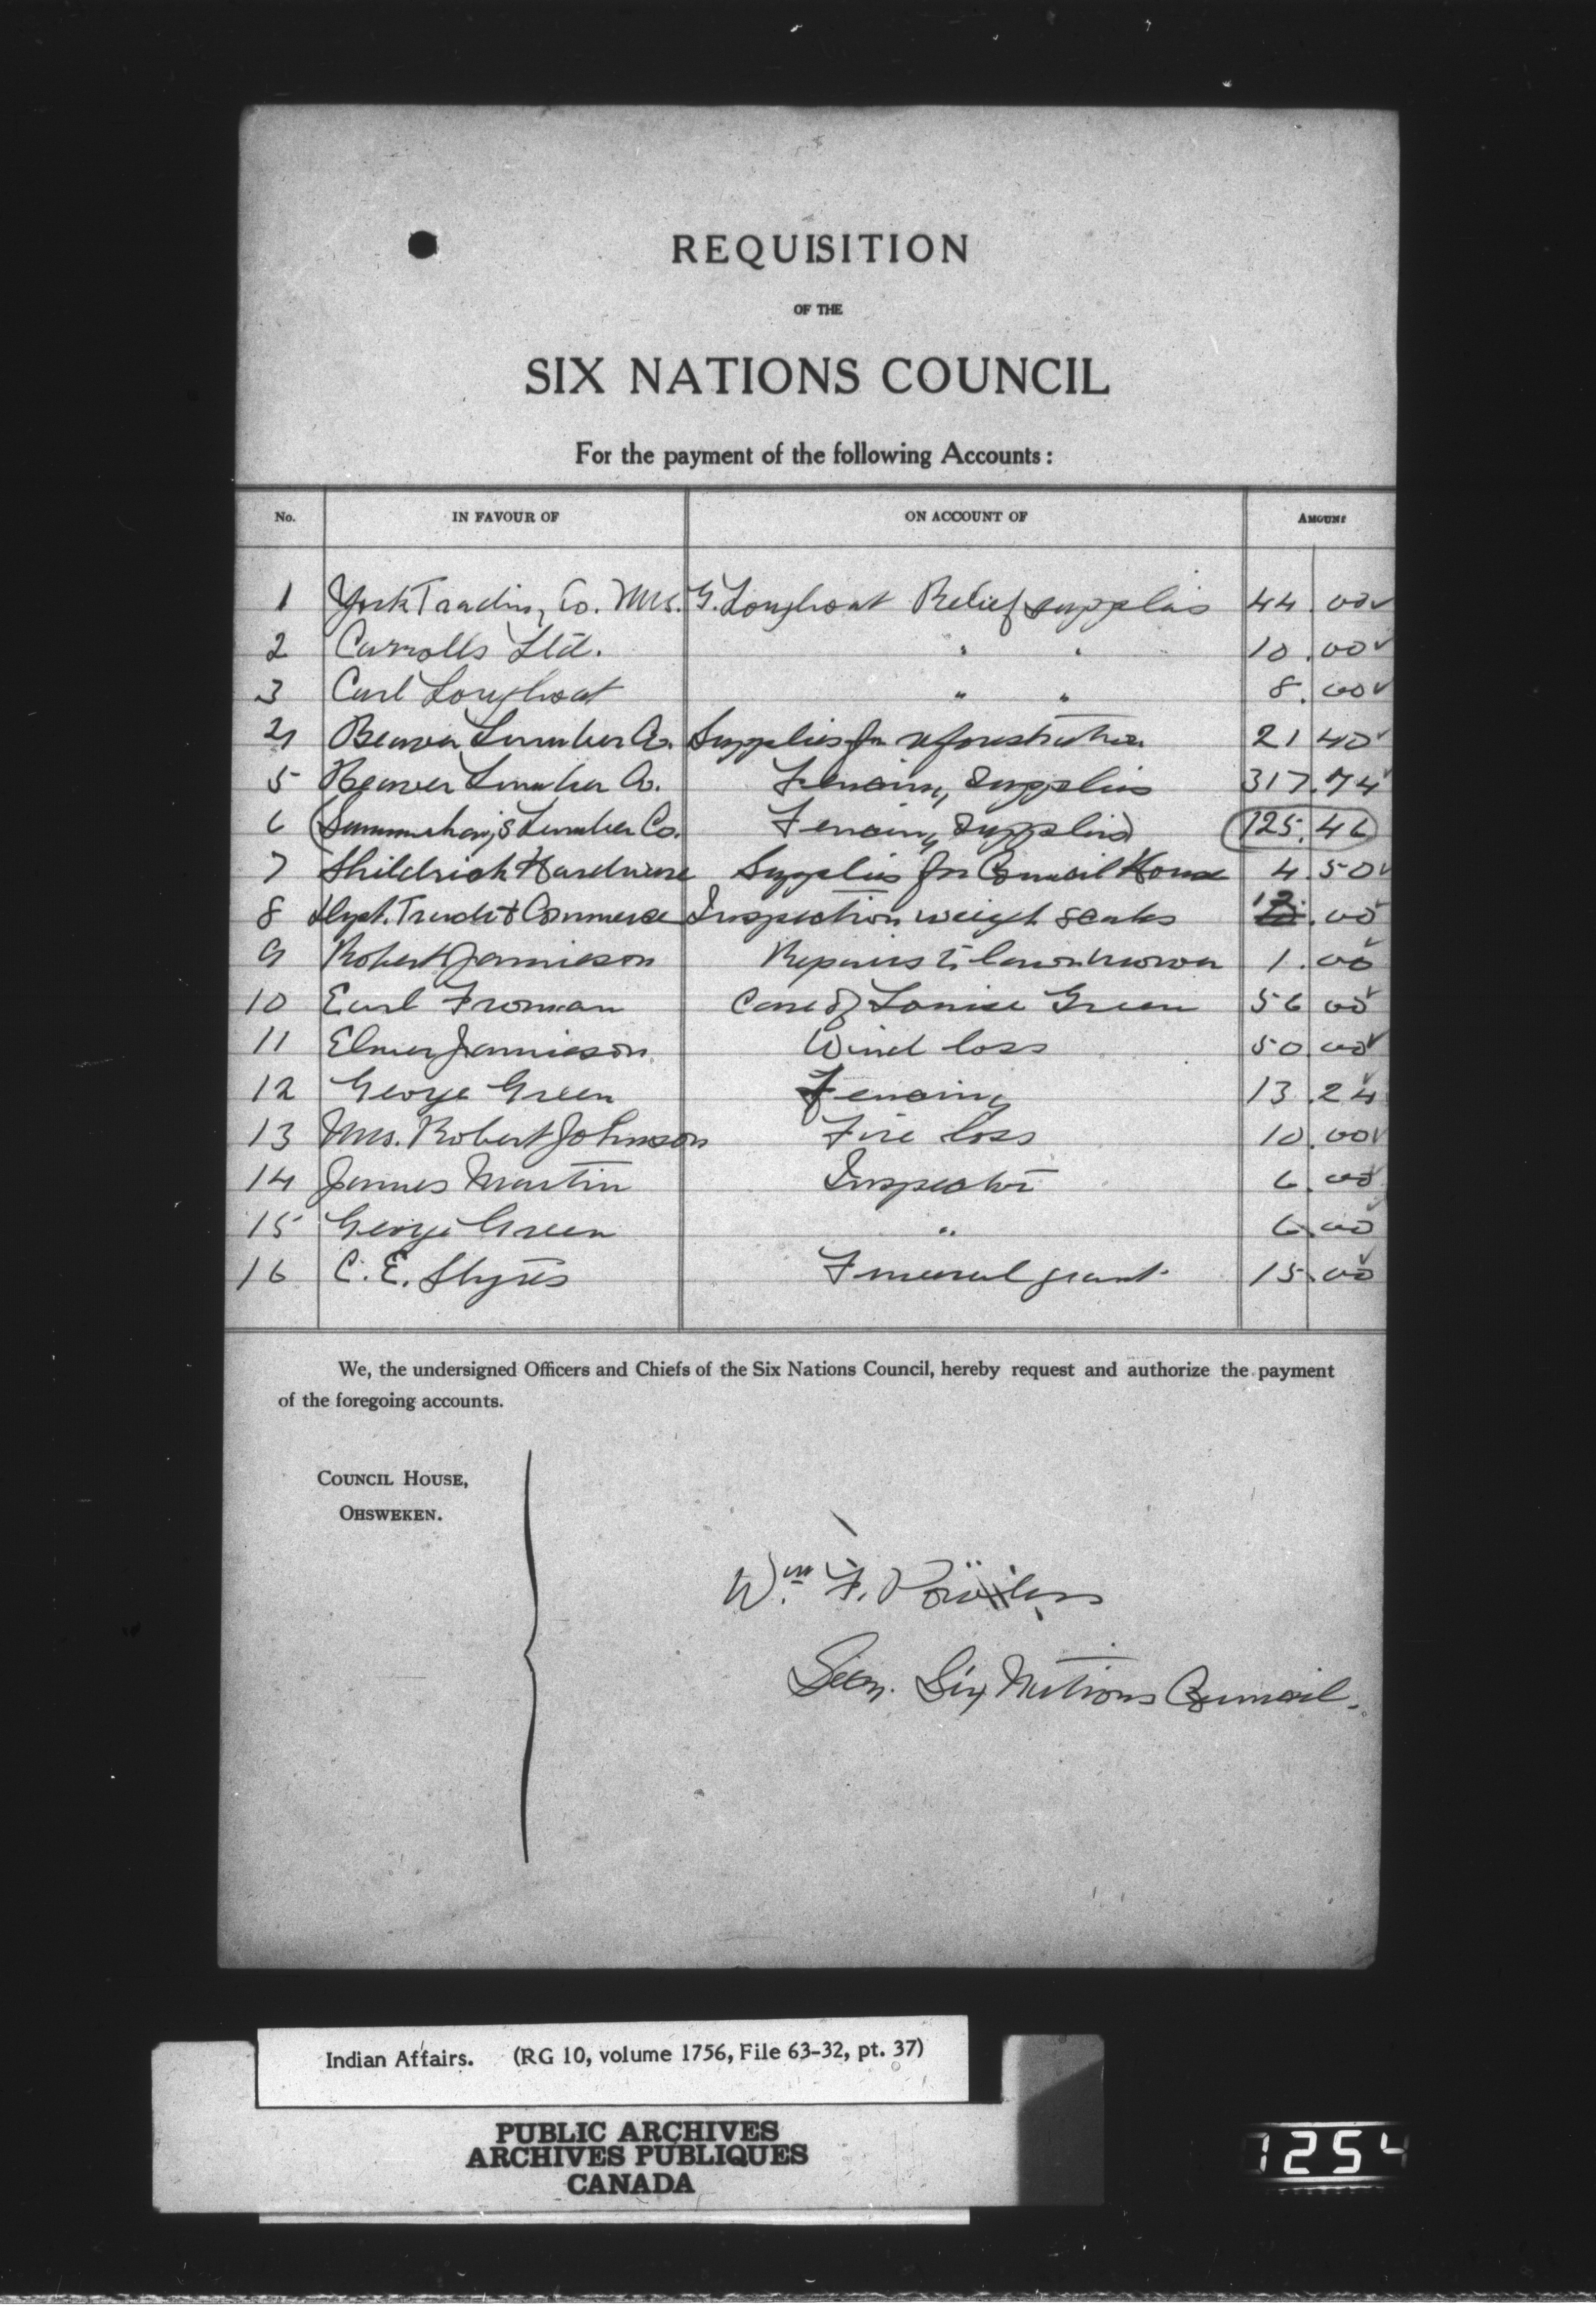 REQUISITION
OF THE
SIX NATIONS COUNCIL
For the payment of the following Accounts:
No. IN FAVOUR OF ON ACCOUNT OF AMOUNT
1 York Trading Co. Mrs. G. Longboat Relief supplies 44.00
2 Carrolls Ltd. " " 10.00
3 Carl Longboat " " 8.00
4 Beaver Lumber Co. Supplies for reforestration 21 40
5 Beaver Lumber Co. Fencing supplies 317.74
6 Lumber Co. Fencing supplies 125.46
7 Shildrick Hardware Supplies for Council House 4.50
8 Dept. Trade & Commerce Inspection weigh scales 12.00
9 Robert Jamieson Repairs to lawnmower 1.00
10 Earl Froman Care of Louise Green 56 00
11 Elmer Jamieson Wind loss 50 00
12 George Green Fencing 13.24
13 Mrs. Robert Johnson Fire loss 10.00
14 James Martin Inspector 6.00
15 George Green " 6.00
16 C. E. Styres Funeral grant 15.00
We, the undersigned Officers and Chiefs of the Six Nations Council, hereby request and authorize the payment
of the foregoing accounts.
COUNCIL HOUSE,
OHSWEKEN.
Wm. F. Powless
Secy. Six Nations Council.
Indian Affairs. (RG 10, volume 1756, File 63-32, pt. 37)
PUBLIC ARCHIVES
ARCHIVES PUBLIQUES
CANADA
1254